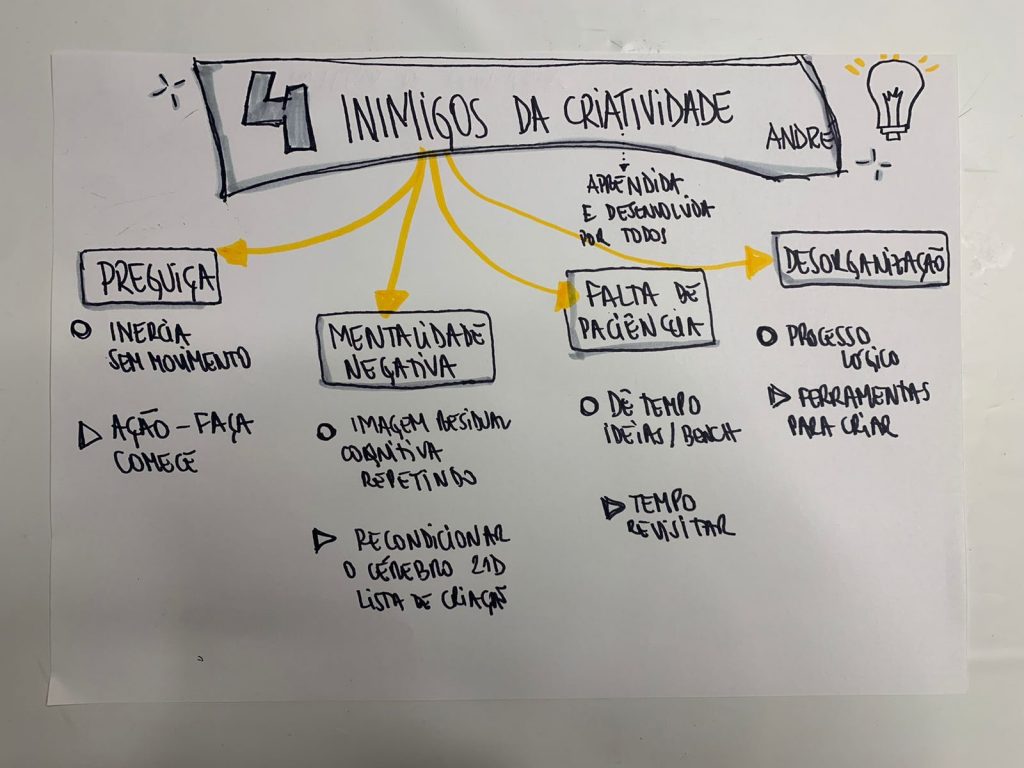 4 INIMIGOS DA CRIATIVIDADE
ANDRE
APRENDIDA
E DESENVOLVIDA
POR TODOS
PREGUIÇA
INERCIA
SEM MOVIMENTO
AÇÃO - FAÇA
COMECE
MENTALIDADE
NEGATIVA
IMAGEM RESIDUAL
COGNITIVA
REPETINDO
RECONDICIONAR
O CÉREBRO 21D
LISTA DE CRIAÇÃO
FALTA DE
PACIÊNCIA
DÊ TEMPO
IDEIAS/BENCH
TEMPO
REVISITAR
DESORGANIZAÇÃO
PROCESSO
LOGICO
FERRAMENTAS
PARA CRIAR